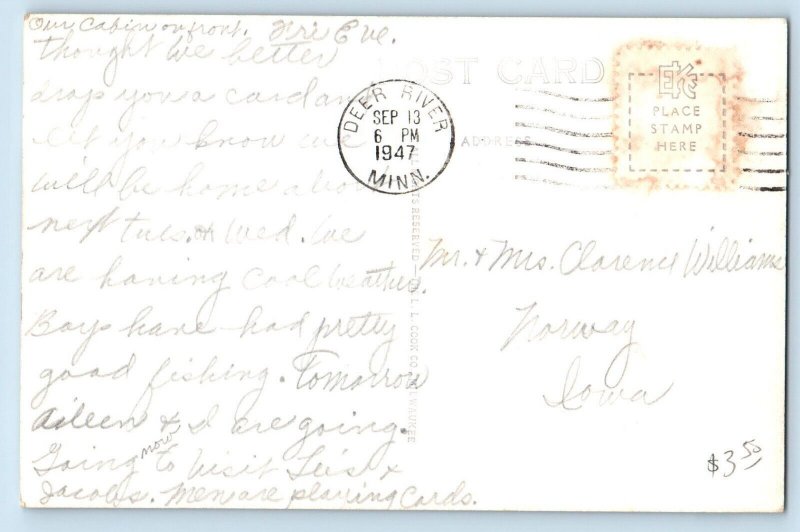 Our Cabin on front. Fri Eve.
thought we better
drop you a card and
let you know we
will be home about
next Tues. or Wed. We
are having cool weather.
Boys have had pretty
good fishing. Tomorrow
Aileen & I are going.
Going now to visit &
Jacobs. Men are playing cards.
POST CARD
ADDRESS
DEER RIVER
SEP 13
6 PM
1947
MINN.
EKC
PLACE
STAMP
HERE
S RESERVED — L. L. COOK CO. MILWAUKEE
Mr. & Mrs. Clarence Williams
Norway
Iowa
$3.50